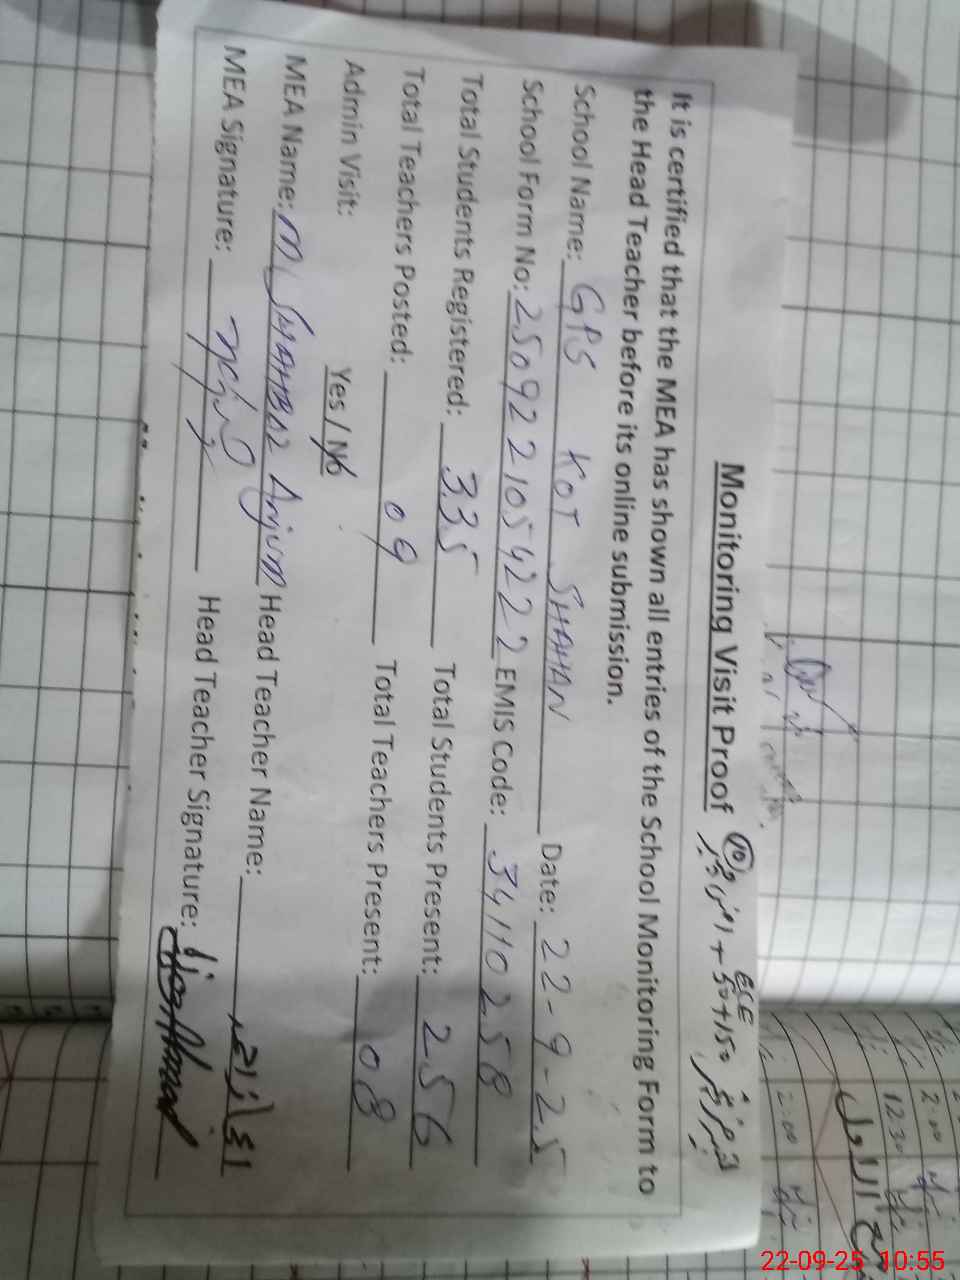 Monitoring Visit Proof
ECE
It is certified that the MEA has shown all entries of the School Monitoring Form to
the Head Teacher before its online submission.
School Name: GPS KOT SHAHAN Date: 22-9-25
School Form No: 25092210 54222 EMIS Code: 34110258
Total Students Registered: 335 Total Students Present: 256
Total Teachers Posted: 09 Total Teachers Present: 08
Admin Visit: Yes / No
MEA Name: M. SHAHBAZ Anjum Head Teacher Name:
MEA Signature: Head Teacher Signature:
2:00
12:30
2:00
22-09-25 10:55